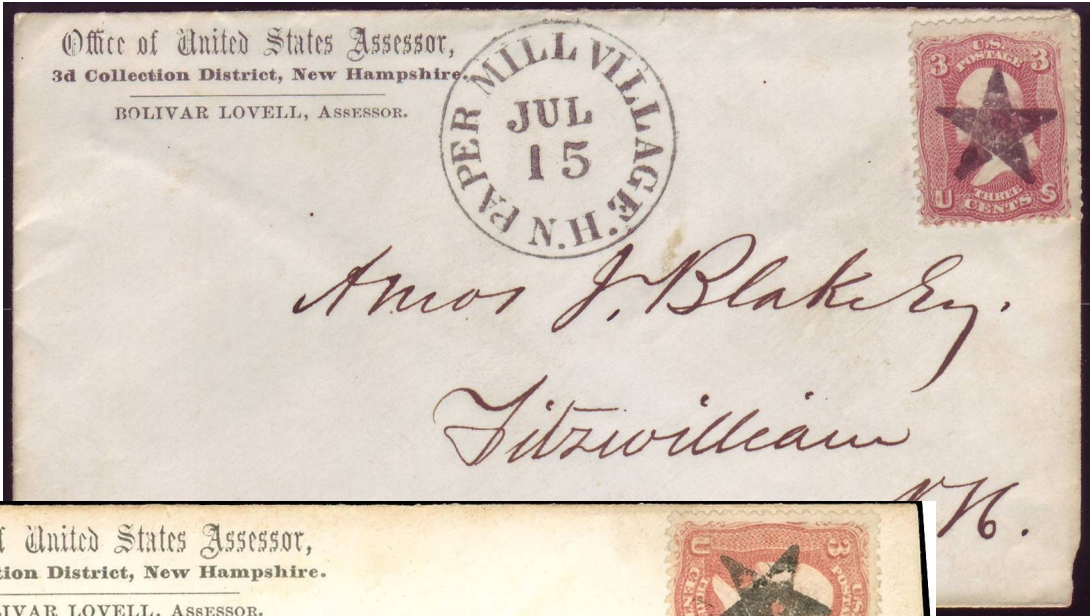 Office of United States Assessor,
3d Collection District, New Hampshire.
BOLIVAR LOVELL, ASSESSOR.
PAPER MILL VILLAGE. N.H.
JUL
15
U.S.
POSTAGE
3 3
THREE
CENTS
U S
Amos J. Blake Esq.
Fitzwilliam
N.H.
f United States Assessor,
tion District, New Hampshire.
LIVAR LOVELL, ASSESSOR.
U 3